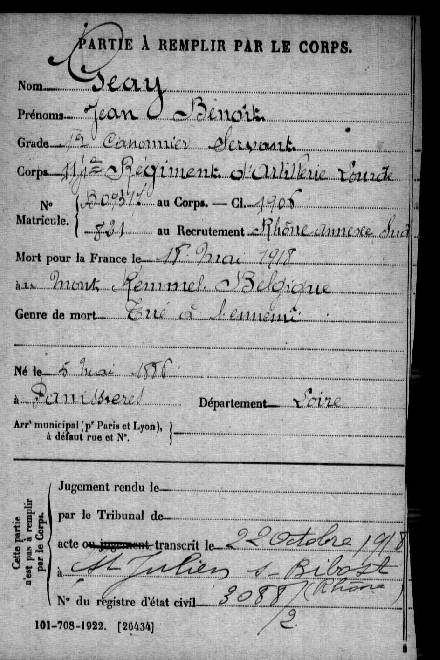 PARTIE À REMPLIR PAR LE CORPS.
Nom Geay
Prénoms Jean Benoît
Grade 1er Canonnier Servant
Corps Régiment d'Artillerie Lourde
N° Matricule. { au Corps. — Cl. 1906
821 au Recrutement Rhône annexe Sud
Mort pour la France le 18 Mai 1918
au Mont Kemmel Belgique
Genre de mort Tué à l'ennemi
Né le 5 Mai 1886
à Panissières Département Loire
Arrt municipal (pr Paris et Lyon), à défaut rue et N°. }
Cette partie n'est pas à remplir par le Corps.
Jugement rendu le
par le Tribunal de
acte ou jugement transcrit le 22 Octobre 1918
à St Julien s- Bibost (Rhône)
N° du registre d'état civil 3088/2
101-708-1922. [26434]